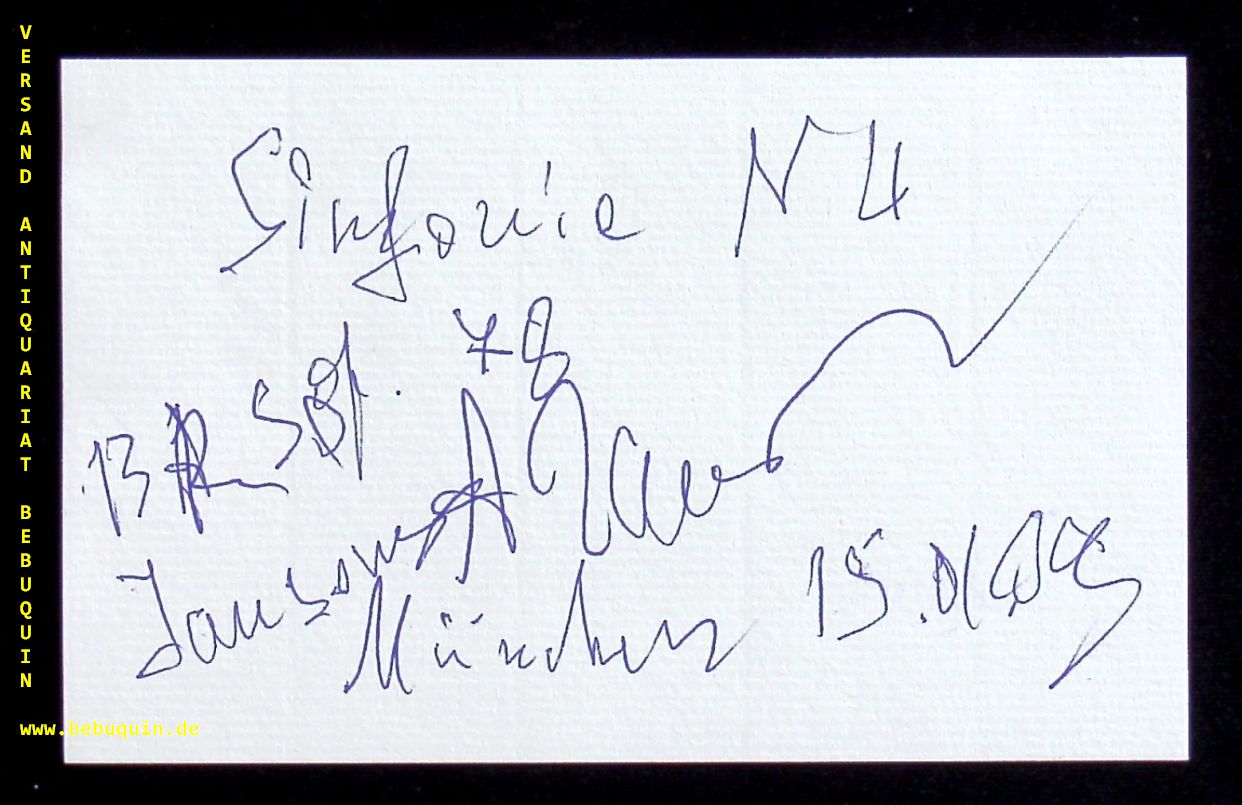 VERSAND ANTIQUARIAT BEBUQUIN
Sinfonie N 4
BR SO
Jansons
München 15.01
www.bebuquin.de